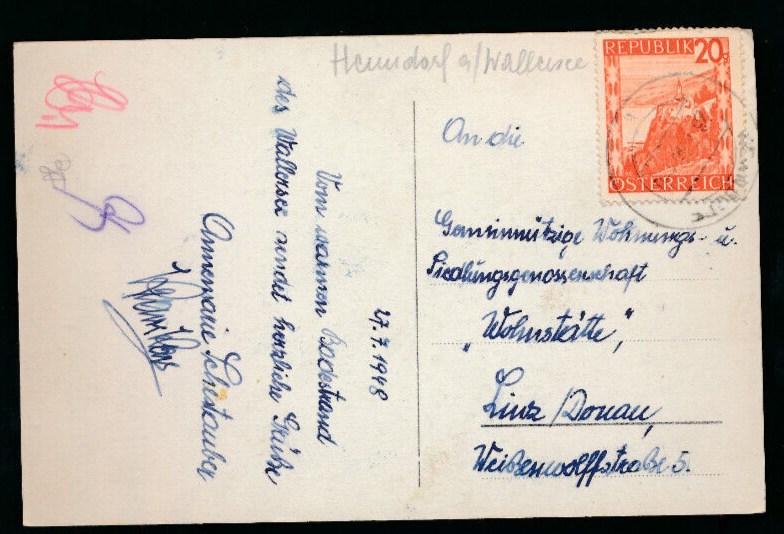 Henndorf a/Wallersee
REPUBLIK 20g
ÖSTERREICH
27.7.1948
Vom warmen Badestrand
des Wallersee sendet herzliche Grüße
Annemarie Schestauber
An die
Gemeinnützige Wohnungs- u.
Siedlungsgenossenschaft
„Wohnstätte”,
Linz/Donau,
Weißenwolffstraße 5.